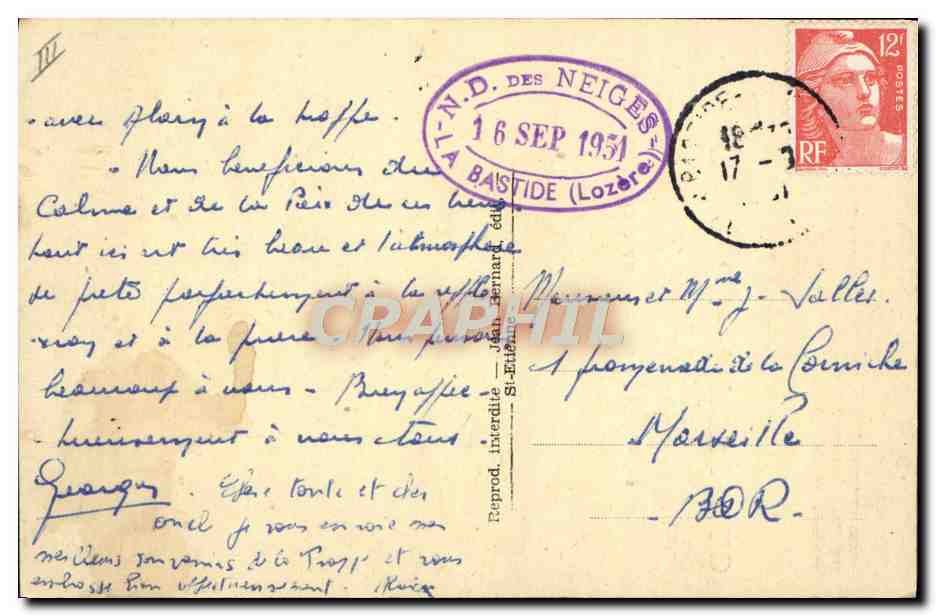 III
- avec Alain à la trappe.
- Nous beneficions du
Calme et de la Paix de ces lieux
tout ici est très beau et l'atmosphère
se prête parfaitement à la refle
xion et à la priere. Nous pensons
beaucoup à vous - Bien affec-
tueusement à vous tous -
Georges. Chère tante et cher
oncle je vous envoie mes
meilleurs souvenirs de la Trappe et vous
embrasse bien affectueusement. Alain
N.D. DES NEIGES
16 SEP 1951
LA BASTIDE (Lozère)
18
17 - 9
12F
POSTES
RF
Reprod. interdite — Jean Bernard, édit.
St-Etienne
CRAPHIL
Monsieur et Mme J. Valles
1 promenade de la Corniche
Marseille
- BDR -